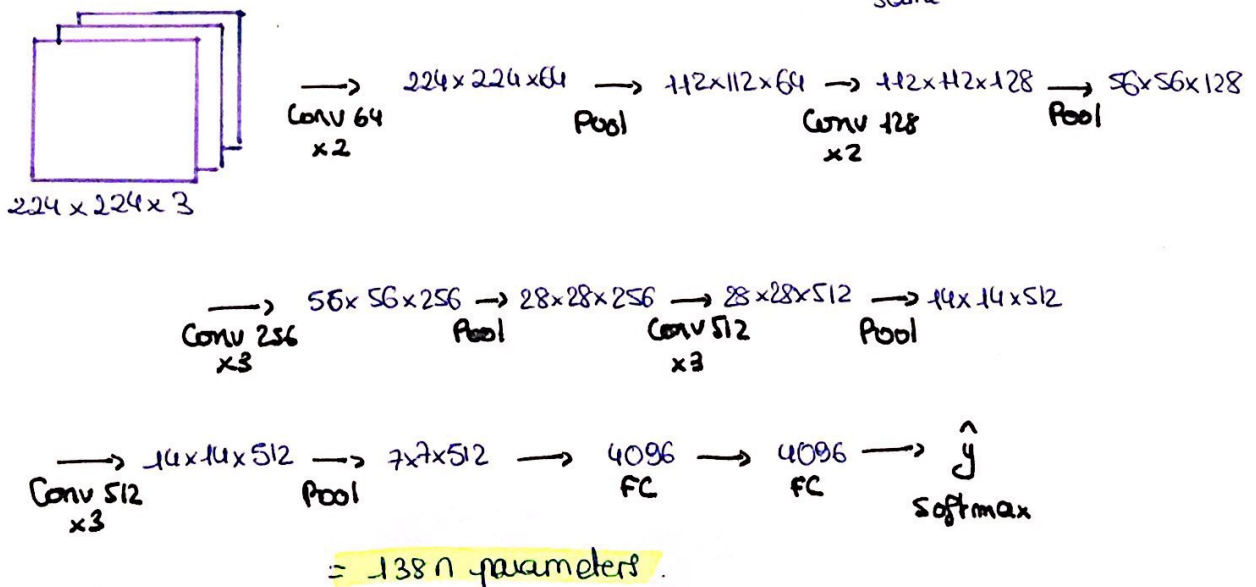 224 x 224 x 3
→ 224 x 224 x 64 → 112 x 112 x 64 → 112 x 112 x 128 → 56 x 56 x 128
Conv 64 Pool Conv 128 Pool
x2 x2
→ 56 x 56 x 256 → 28 x 28 x 256 → 28 x 28 x 512 → 14 x 14 x 512
Conv 256 Pool Conv 512 Pool
x3 x3
→ 14 x 14 x 512 → 7 x 7 x 512 → 4096 → 4096 → ŷ
Conv 512 Pool FC FC Softmax
x3
= 138 n parameters.